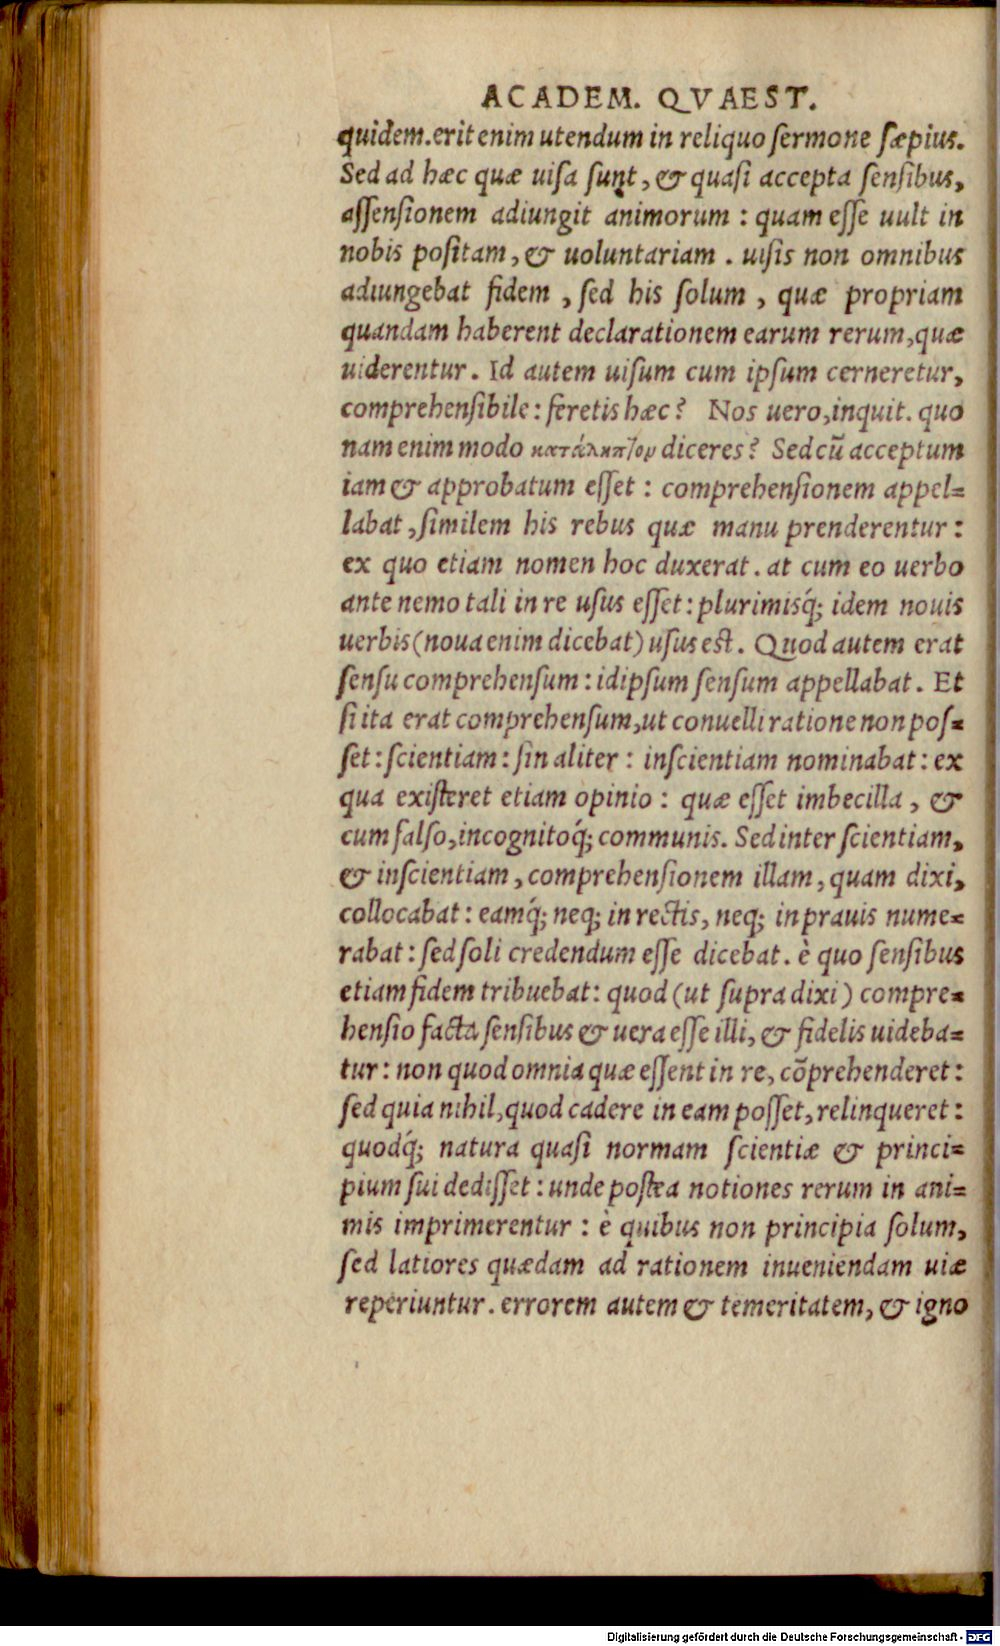 ACADEM. QVAEST.
quidem.erit enim utendum in reliquo ſermone ſæpius.
Sed ad hæc quæ uiſa ſunt, & quaſi accepta ſenſibus,
aſſenſionem adiungit animorum : quam eſſe uult in
nobis poſitam, & uoluntariam . uiſis non omnibus
adiungebat fidem , ſed his ſolum , quæ propriam
quandam haberent declarationem earum rerum,quæ
uiderentur. Id autem uiſum cum ipſum cerneretur,
comprehenſibile : feretis hæc? Nos uero,inquit. quo
nam enim modo κατάληπτον diceres? Sed cũ acceptum
iam & approbatum eſſet : comprehenſionem appel=
labat, ſimilem his rebus quæ manu prenderentur :
ex quo etiam nomen hoc duxerat. at cum eo uerbo
ante nemo tali in re uſus eſſet : plurimisq́; idem nouis
uerbis (noua enim dicebat) uſus est. Quod autem erat
ſenſu comprehenſum : id ipſum ſenſum appellabat. Et
ſi ita erat comprehenſum,ut conuelli ratione non poſ=
ſet : ſcientiam : ſin aliter : inſcientiam nominabat : ex
qua exiſteret etiam opinio : quæ eſſet imbecilla , &
cum falſo,incognitoq́; communis. Sed inter ſcientiam,
& inſcientiam, comprehenſionem illam, quam dixi,
collocabat : eamq́; neq; in rectis, neq; in prauis nume=
rabat : ſed ſoli credendum eſſe dicebat. è quo ſenſibus
etiam fidem tribuebat : quod (ut ſupra dixi) compre=
henſio facta ſenſibus & uera eſſe illi, & fidelis uideba=
tur : non quod omnia quæ eſſent in re, cõprehenderet :
ſed quia nihil,quod cadere in eam poſſet,relinqueret :
quodq́; natura quaſi normam ſcientiæ & princi=
pium ſui dediſſet : unde poſtea notiones rerum in ani=
mis imprimerentur : è quibus non principia ſolum,
ſed latiores quædam ad rationem inueniendam uiæ
reperiuntur. errorem autem & temeritatem, & igno
Digitalisierung gefördert durch die Deutsche Forschungsgemeinschaft - DFG